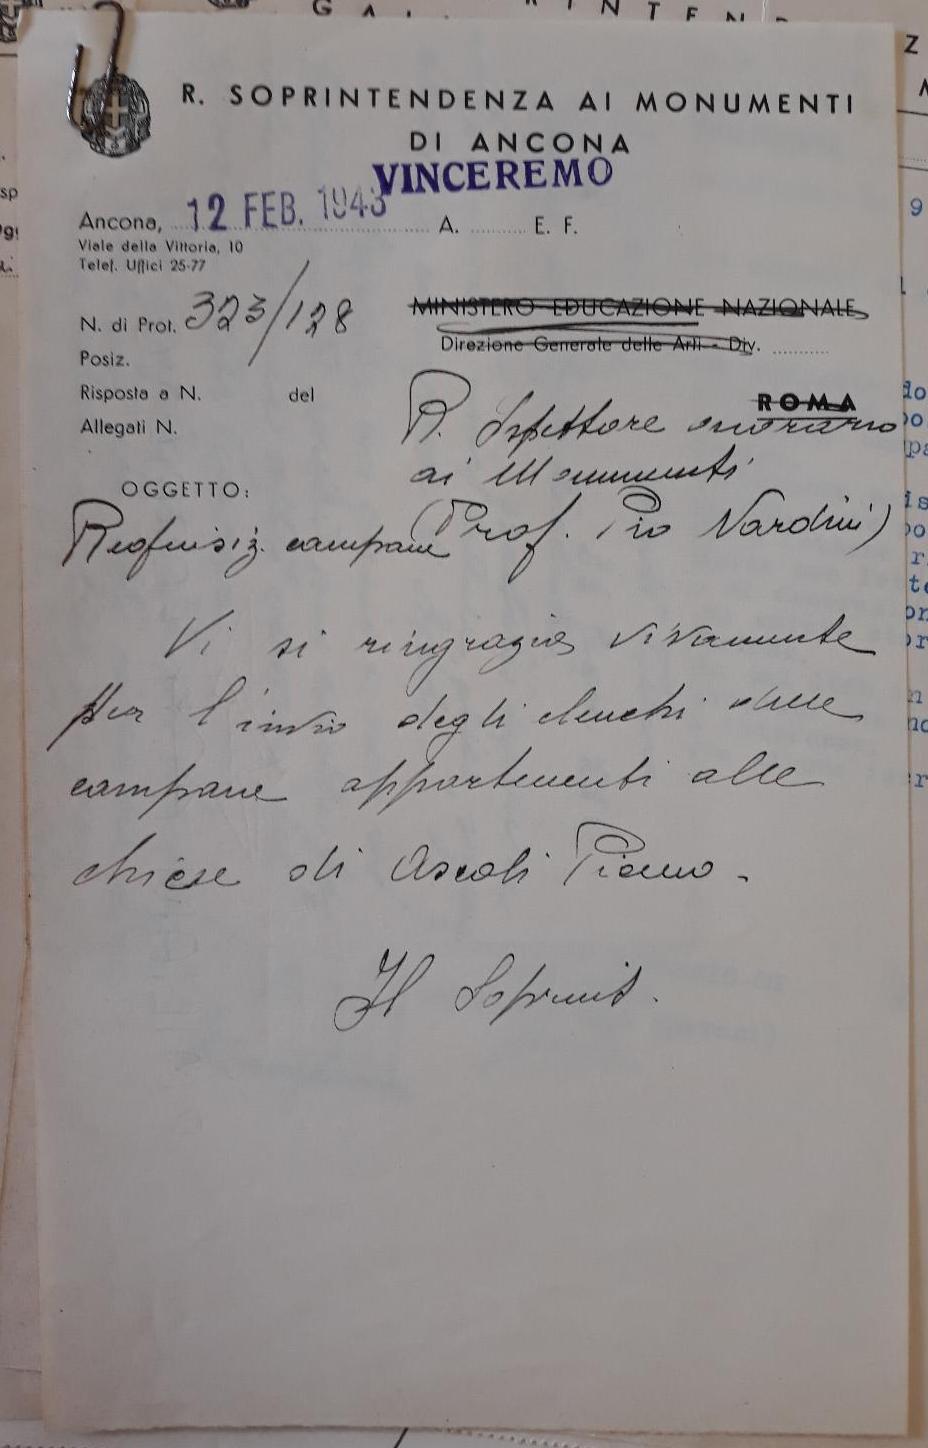 R. SOPRINTENDENZA AI MONUMENTI
DI ANCONA
VINCEREMO
Ancona, 12 FEB. 1943 A. E. F.
Viale della Vittoria, 10
Telef. Uffici 25-77
N. di Prot. 323/128
MINISTERO EDUCAZIONE NAZIONALE
Direzione Generale delle Arti - Div.
Posiz.
Risposta a N. del
ROMA
Allegati N.
R. Ispettore onorario
ai Monumenti
(Prof. Pio Nardini)
OGGETTO:
Requisiz. campane
Vi si ringrazia vivamente
per l'invio degli elenchi delle
campane appartenenti alle
chiese di Ascoli Piceno.
Il Soprint.